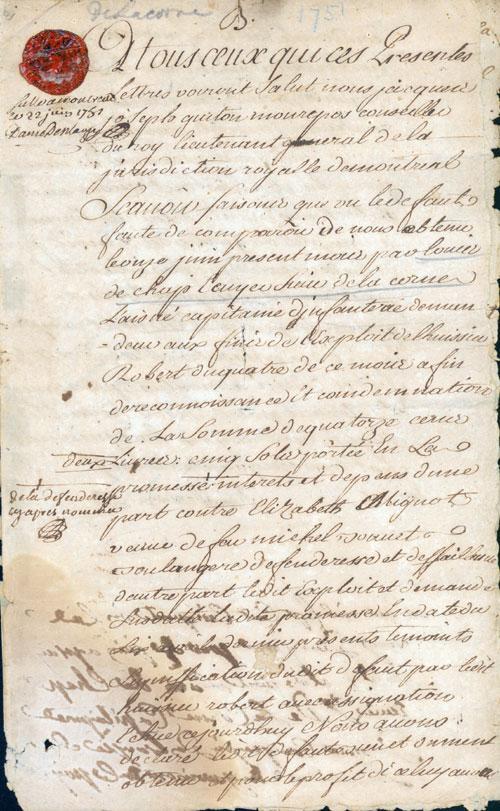 delacorne
B.
1751
A tous ceux qui ces Presentes
Lettres verront Salut nous jacques
joseph guiton monrepos conseiller
du roy lieutenant general de la
jurisdiction royalle demontreal
Scavoir faisons que vu le defaut
faute de comparoir de nous obtenu
le onze juin present mois par Louis
de chap Ecuyer Sieur de la corne
Laisné capitaine d'jnfanterie deman
deur aux fins de l'Exploit de lhuissier
Robert du quatre de ce mois a fin
de reconnoissance et condemnation
de La Somme de quatorze cens
deux Livres cinq Sols portée En La
promesse interets et depens dune
part contre Elizabeth Abignot
veuve de feu michel
boulangere defenderesse et deffaillante
dautre part ledit Exploit et demande
la dite promesse En date du
dernier presents temoins
signiffication dudit defaut par ledit
huissier robert avec assignation
cejourdhuy Nous avons
declaré le dit defaut
obtenu et pour le profit diceluy avons
Scellé a montreal
ce 22 juin 1751
Danré Deblanzy
de la defenderesse
cy après nommée